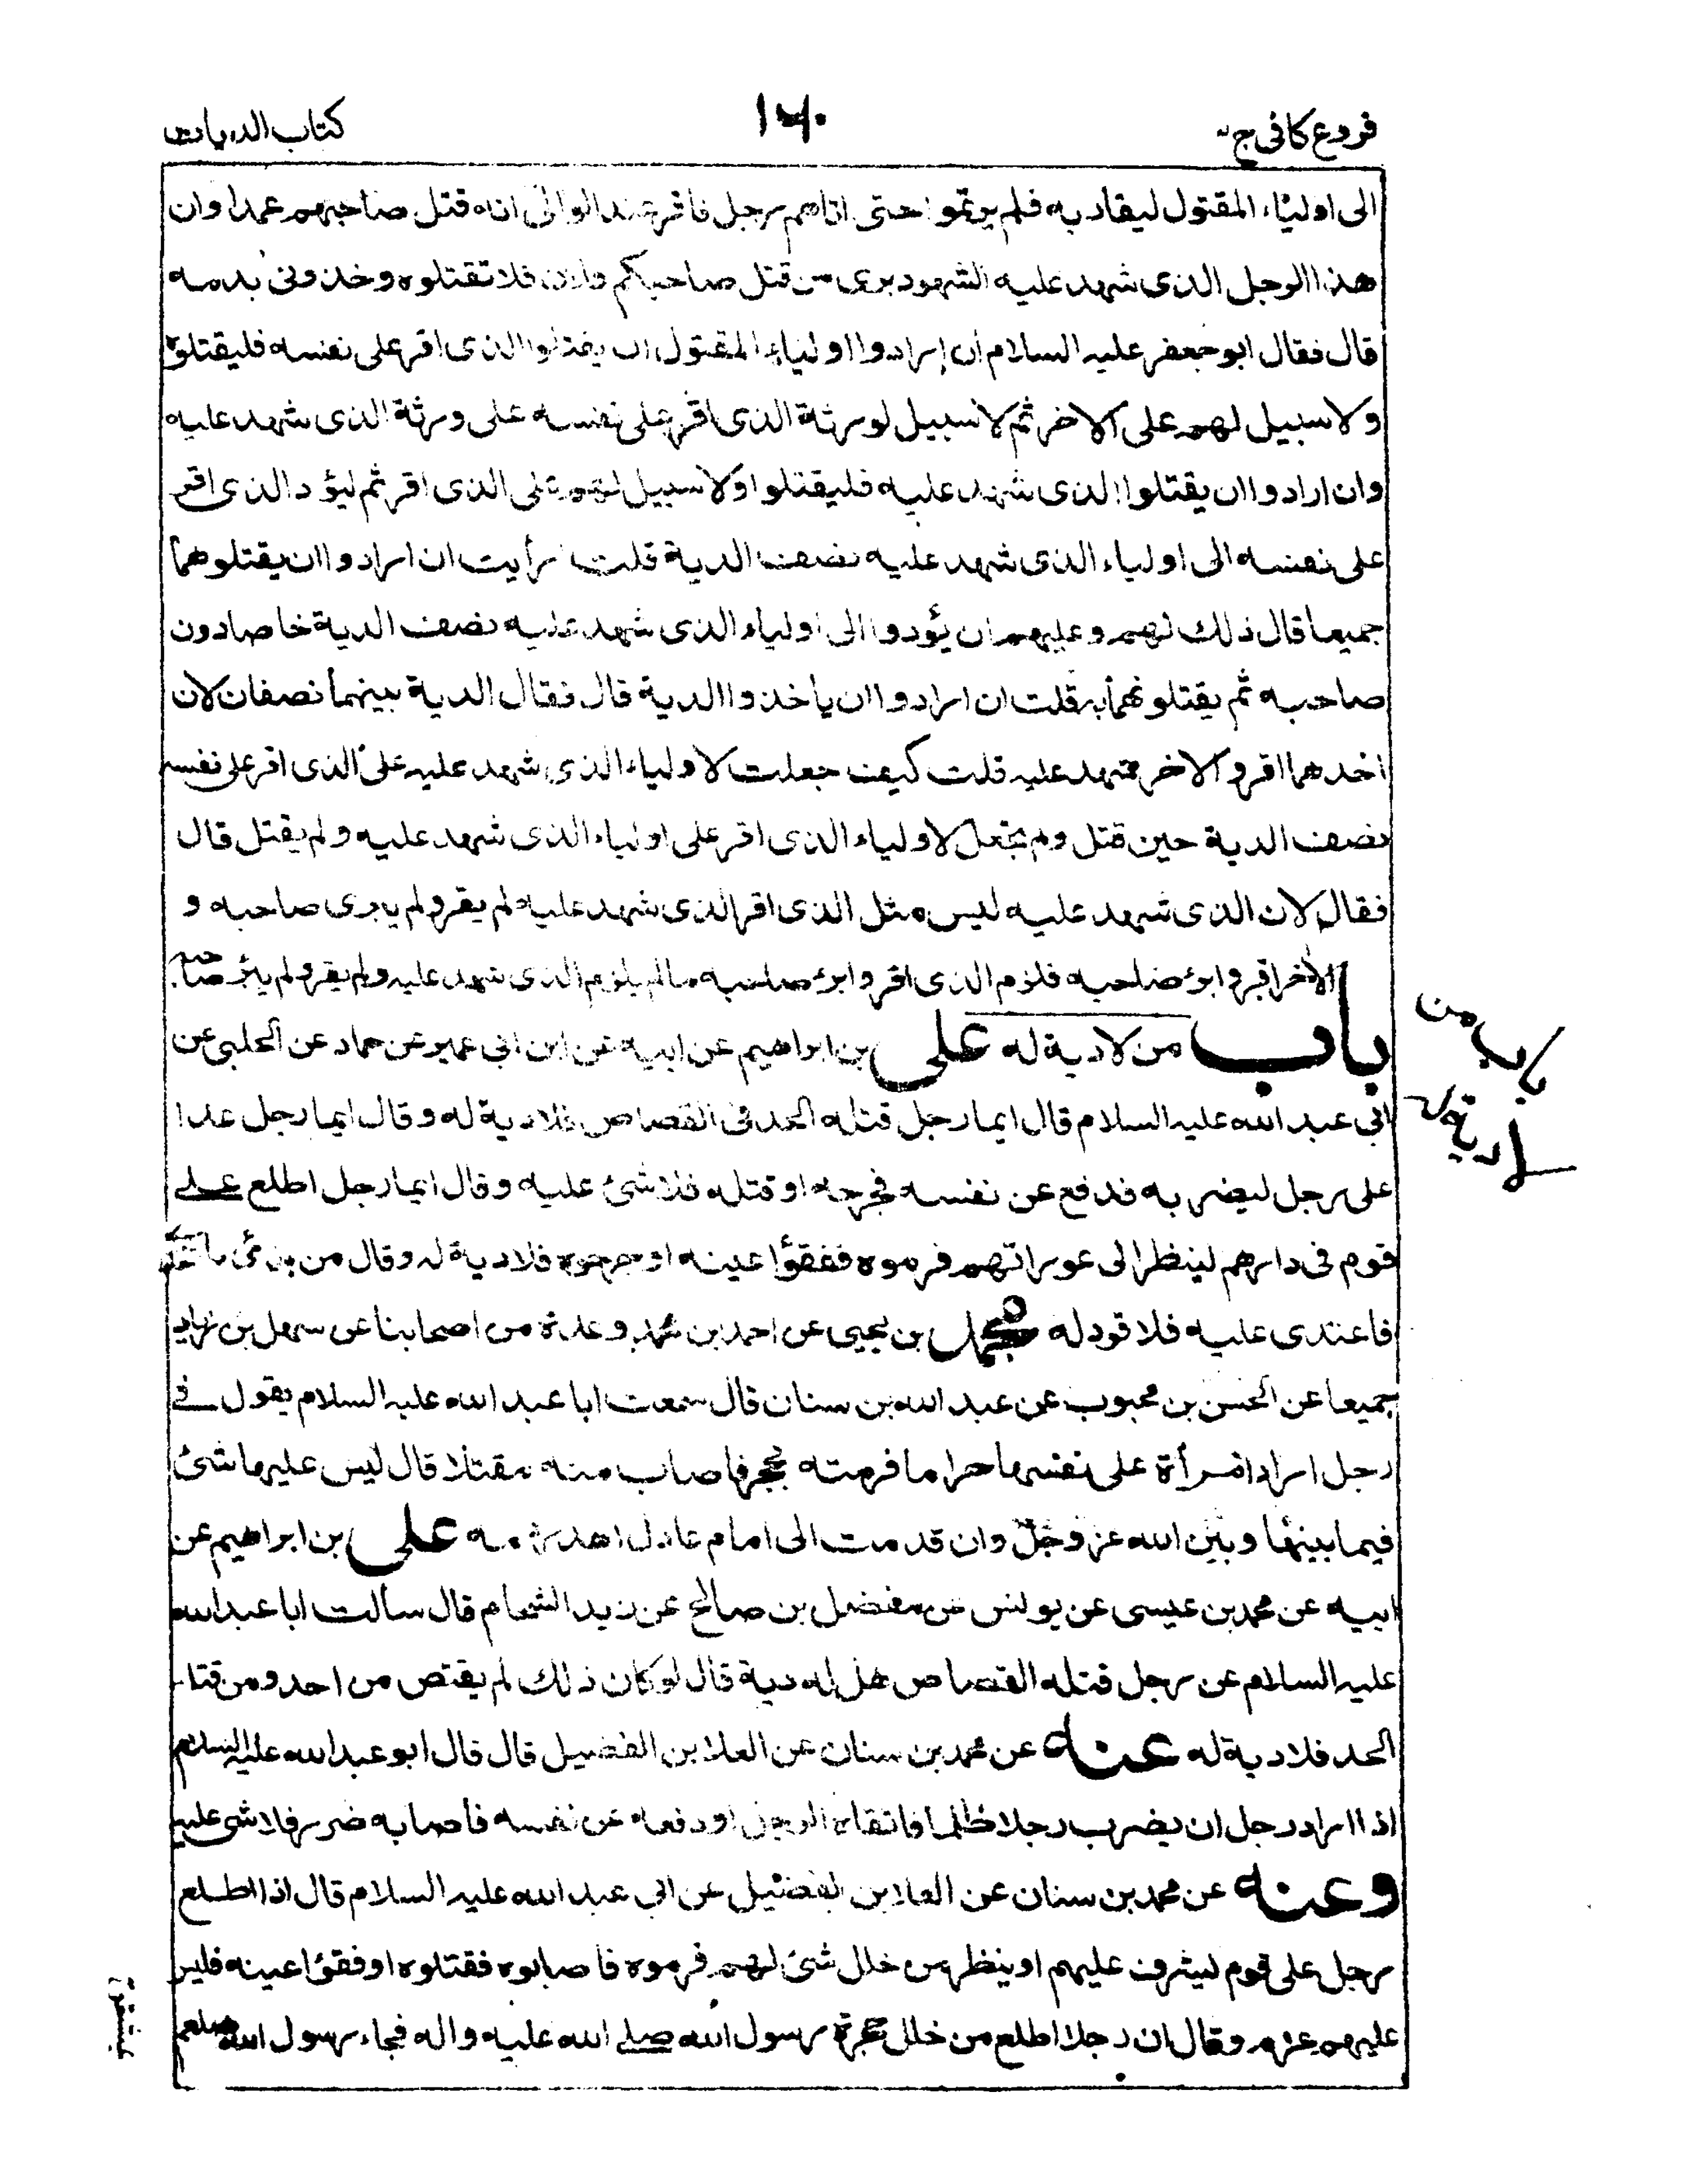 فروع كافى ج٣
١٦٠
كتاب الديات
الى اولياء المقتول ليقاد به فلم يرتموا حتى اتاهم رجل فاقر عند الوالى انه قتل صاحبهم عمدا وان
هذا الرجل الذى شهد عليه الشهود برى من قتل صاحبكم فلان فلا تقتلوه وخذونى بدمه
قال فقال ابو جعفر عليه السلام ان ارادوا اولياء المقتول ان يقتلوا الذى اقر على نفسه فليقتلوه
ولا سبيل لهم على الاخر ثم لا سبيل لورثة الذى اقر على نفسه على ورثة الذى شهد عليه
وان ارادوا ان يقتلوا الذى شهد عليه فليقتلوا ولا سبيل لهم على الذى اقر ثم ليؤد الذى اقر
على نفسه الى اولياء الذى شهد عليه نصف الدية قلت ارأيت ان ارادوا ان يقتلوهما
جميعا قال ذلك لهم وعليهم ان يؤدوا الى اولياء الذى شهد عليه نصف الدية خاصا دون
صاحبه ثم يقتلونهما به قلت ان ارادوا ان ياخذوا الدية قال فقال الدية بينهما نصفان لان
احدهما اقر والاخر شهد عليه قلت كيف جعلت لاولياء الذى شهد عليه على الذى اقر على نفسه
نصف الدية حين قتل ولم تجعل لاولياء الذى اقر على اولياء الذى شهد عليه ولم يقتل قال
فقال لان الذى شهد عليه ليس مثل الذى اقر الذى شهد عليه لم يقر ولم يبرى صاحبه و
الاخر اقر وابرئ صاحبه فلزم الذى اقر وابرئ صاحبه ما لم يلزم الذى شهد عليه ولم يقر ولم يبرئ صاحبه
باب من لا دية له على بن ابراهيم عن ابيه عن ابن ابى عمير عن حماد عن الحلبى عن
ابى عبد الله عليه السلام قال ايما رجل قتله الحد فى القصاص فلا دية له وقال ايما رجل عدا
على رجل ليضربه فدفع عن نفسه فجرحه او قتله فلا شئ عليه وقال ايما رجل اطلع على
قوم فى دارهم لينظر الى عوراتهم فرموه ففقؤا عينه او جرحوه فلا دية له وقال من بدئ
فاعتدى عليه فلا قود له محمد بن يحيى عن احمد بن محمد وعدة من اصحابنا عن سهل بن زياد
جميعا عن الحسن بن محبوب عن عبد الله بن سنان قال سمعت ابا عبد الله عليه السلام يقول فى
رجل اراد امرأة على نفسها حراما فرمته بحجر فاصاب منه مقتلا قال ليس عليها شئ
فيما بينها وبين الله عز وجل وان قدمت الى امام عادل اهدر دمه على بن ابراهيم عن
ابيه عن محمد بن عيسى عن يونس عن مفضل بن صالح عن زيد الشحام قال سألت ابا عبد الله
عليه السلام عن رجل قتله القصاص هل له دية قال لو كان ذلك لم يقتص من احد ومن قتله
الحد فلا دية له عنه عن محمد بن سنان عن العلا بن الفضيل قال قال ابو عبد الله عليه السلام
اذا اراد رجل ان يضرب رجلا ظلما فاتقاه الرجل او دفعه عن نفسه فأصابه ضرر فلا شى عليه
وعنه عن محمد بن سنان عن العلا بن الفضيل عن ابى عبد الله عليه السلام قال اذا اطلع
رجل على قوم ليشرف عليهم او ينظر من خلال شئ لهم فرموه فأصابوه فقتلوه او فقؤا عينه فليس
عليهم غرم وقال ان رجلا اطلع من خلل حجرة رسول الله صلى الله عليه واله فجاء رسول الله صلعم
باب من
لا دية له
بمشقص